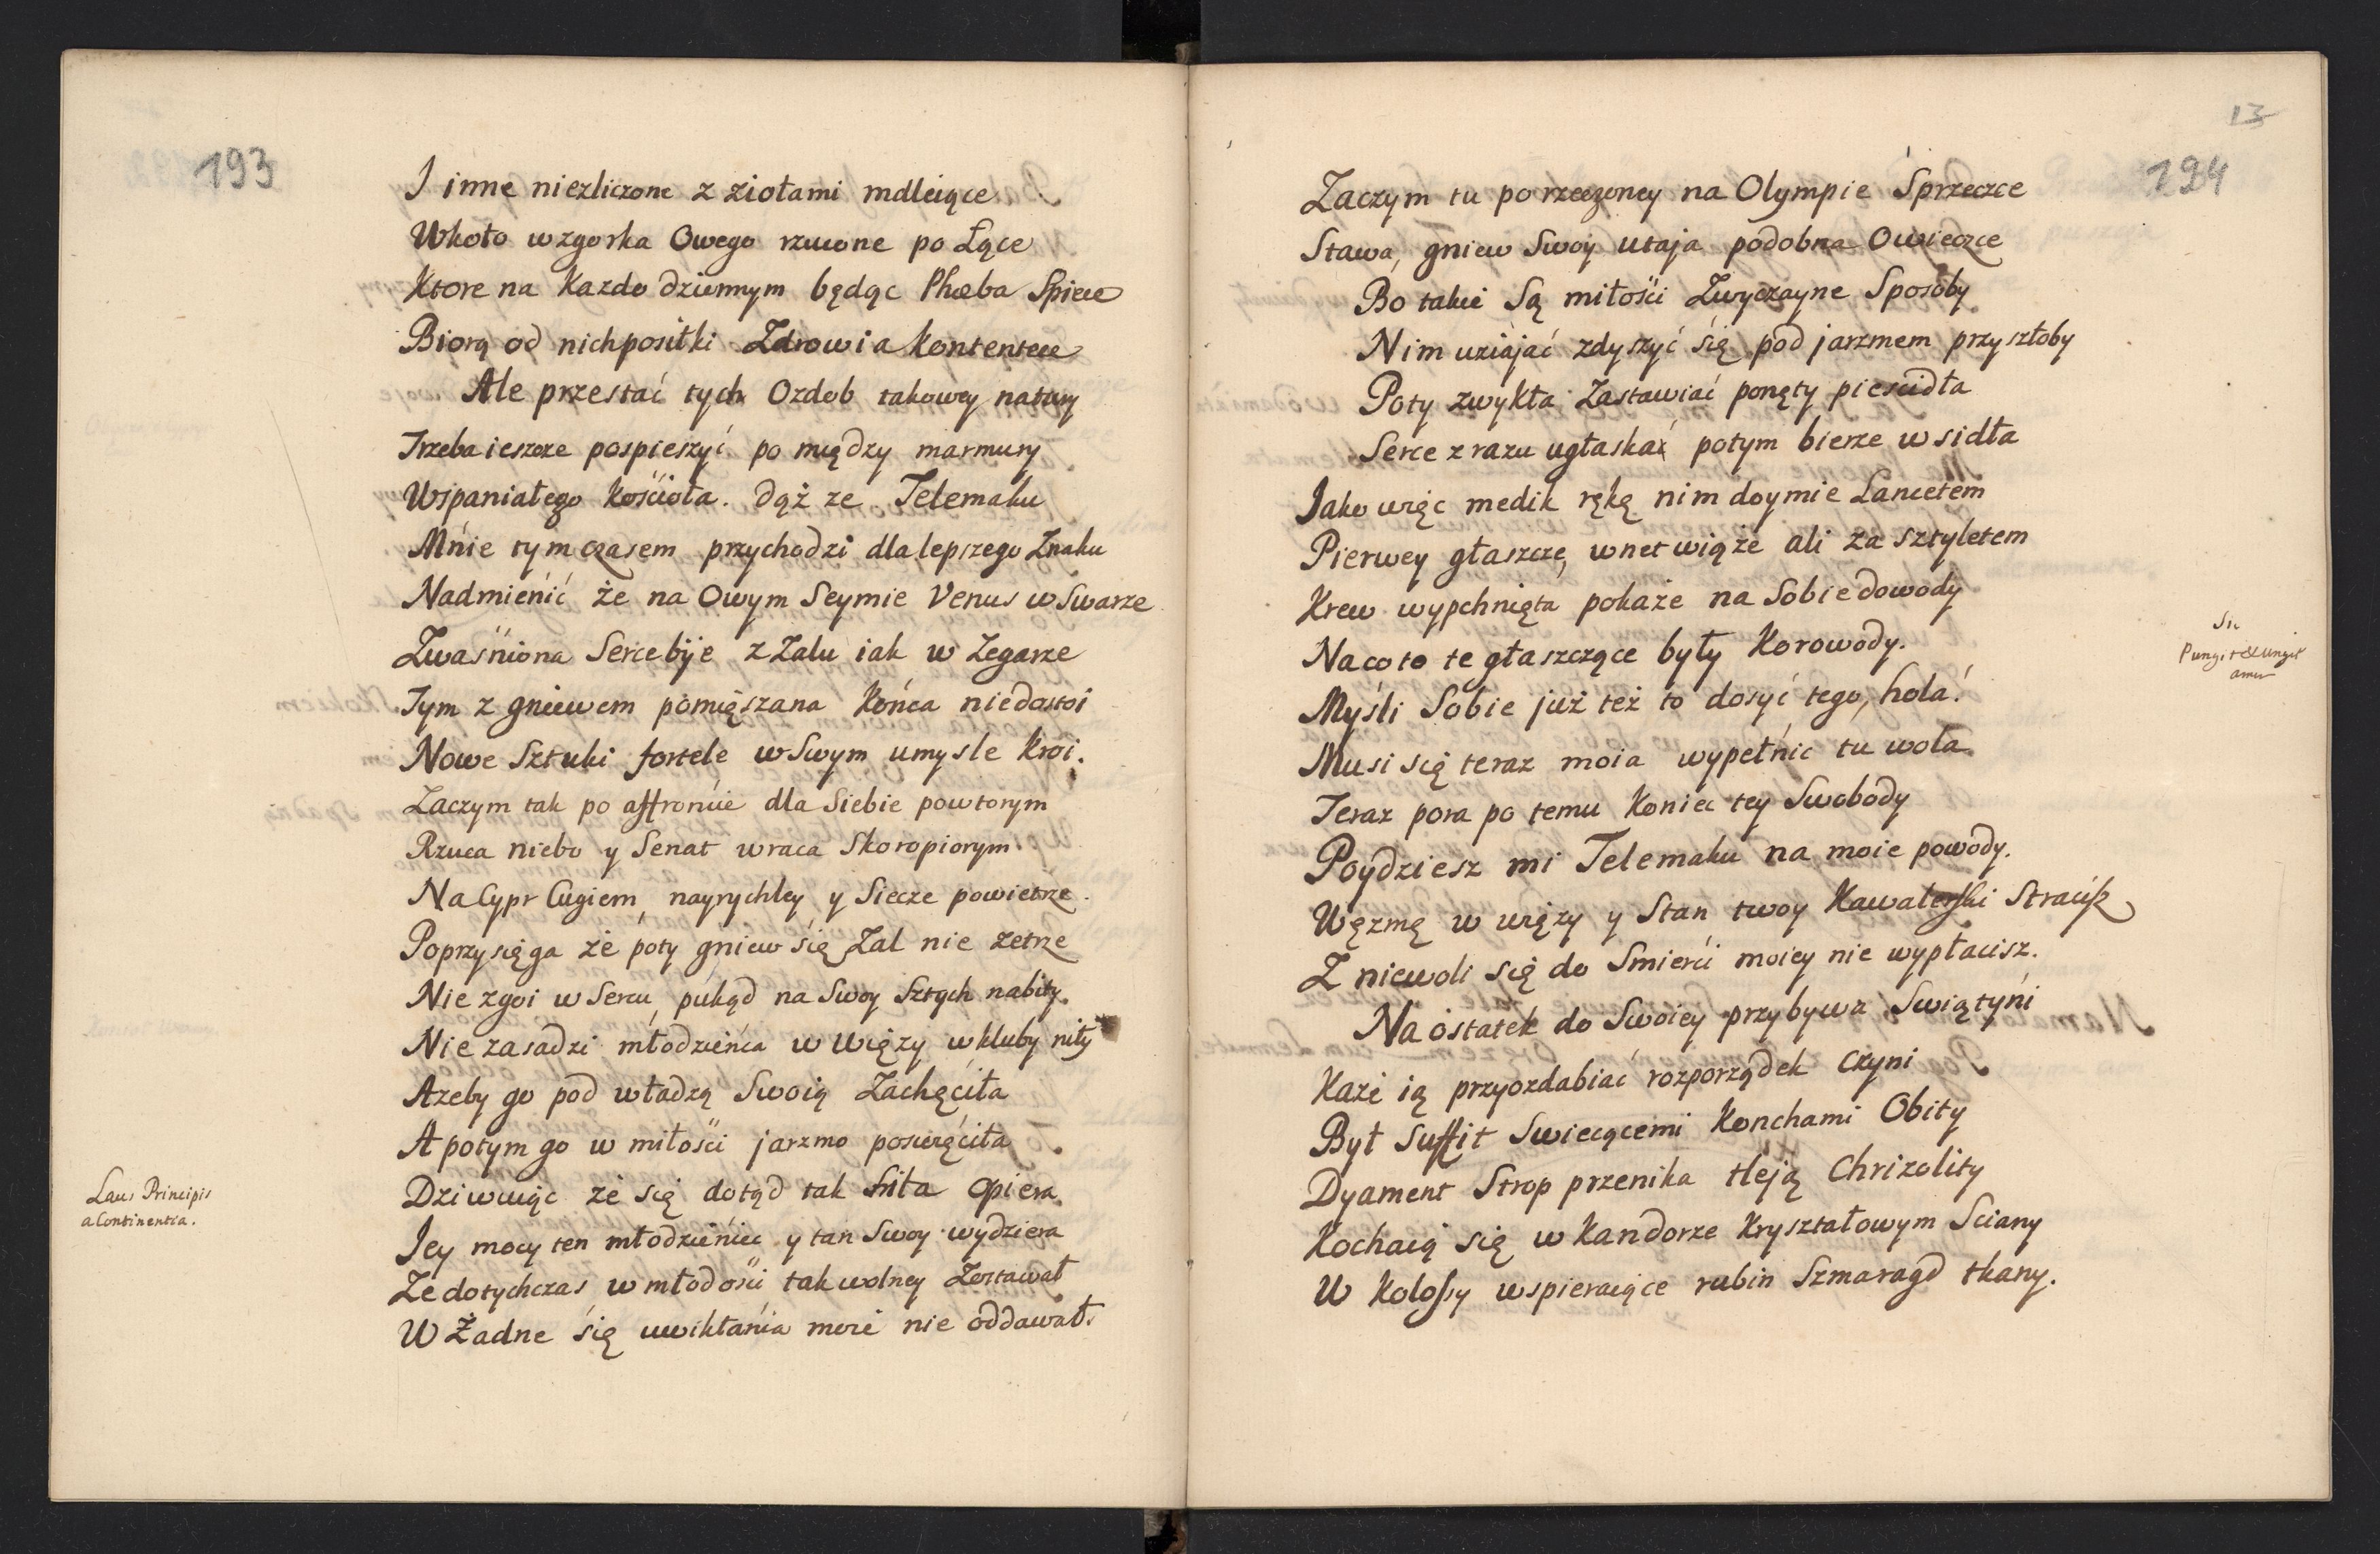 193
I inne niezliczone z ziołami mdleiące
Wkoło wzgorka Owego rzucone po Łące
Ktore na Kazdo dziennym będąc Phœba Spiece
Biorą od nich posiłki Zdrowia Kontentece
Ale przestać tych Ozdob takowey natury
Trzeba ieszcze pospieszyć po między marmury
Wspaniałego Kościoła. dąż ze Telemaku
Mnie tym czasem przychodzi dla lepszego Znaku
Nadmienić że na Owym Seymie Venus w Swarze
Zwaśniona Serce bije z Zalu iak w Zegarze
Tym z gniewem pomięszana Końca niedostoi
Nowe Sztuki fortele w Swym umysle Kroi.
Zaczym tak po affroncie dla Siebie powtorym
Rzuca niebo y Senat wraca Skoropiorym
Na Cypr Cugiem nayrychley y Siecze powietrze
Poprzysięga że poty gniew się Zal nie zetrze
Nie zgoi w Sercu, pukąd na Swoy Sztych nabity
Nie zasadzi młodzieńca w więzy w kluby nity
Azeby go pod władzą Swoią Zachęciła
A potym go w miłości jarzmo poswięciła
Dziwuiąc że się dotąd tak siła Opiera
Jey mocy ten młodzieniec y tan Swoy wydziera
Ze dotychczas w młodości tak wolney Zostawał
W Żadne się uwikłania moie nie oddawał.
Laus Principis
a Continentia.
13
194
Zaczym tu po rzeczoney na Olympie Sprzeczce
Stawa, gniew Swoy utaja podobna Owieczce
Bo takie Są miłości Zwyczayne Sposoby
Nim uziajać zdyszyć się pod jarzmem przyszłoby
Poty zwykła Zastawiać ponęty piescidła
Serce z razu ugłaskać potym bierze w sidła
Jako więc medik ręką nim doymie Lancetem
Pierwey głaszcze, wnet wiąże ali za sztyletem
Krew wypchnięta pokaże na Sobie dowody
Na co to te głaszczące były Korowody.
Myśli Sobie już też to dosyć tego, hola!
Musi się teraz moia wypełnic tu wola
Teraz pora po temu Koniec tey Swobody
Poydziesz mi Telemaku na moie powody.
Węzmę w więzy y Stan twoy Kawalerski Stracisz
Z niewoli się do Smierci moiey nie wypłacisz.
Na ostatek do Swoiey przybywa Swiątyni
Kaze ią przyozdabiać rozporządek czyni
Był Suffit Swiecącemi Konchami Obity
Dyament Strop przenika tleją Chrizolity
Kochaią się w Kandorze Kryształowym Sciany
W Kolossy wspieraiące rubin Szmaragd tkany.
Sic
Pungit & ungit
amor